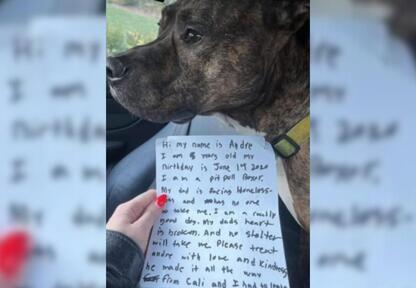 Hi my name is Andre
I am 3 years old my
birthday is June 19 2020
I am a pitbull Boxer.
My dad is facing Homeless-
ness and has no one
to take me. I am a really
good dog. My dads heart
is broken. And no shelter
will take me Please treat
andre with love and kindness
he made it all the way
from Cali and I had to leave